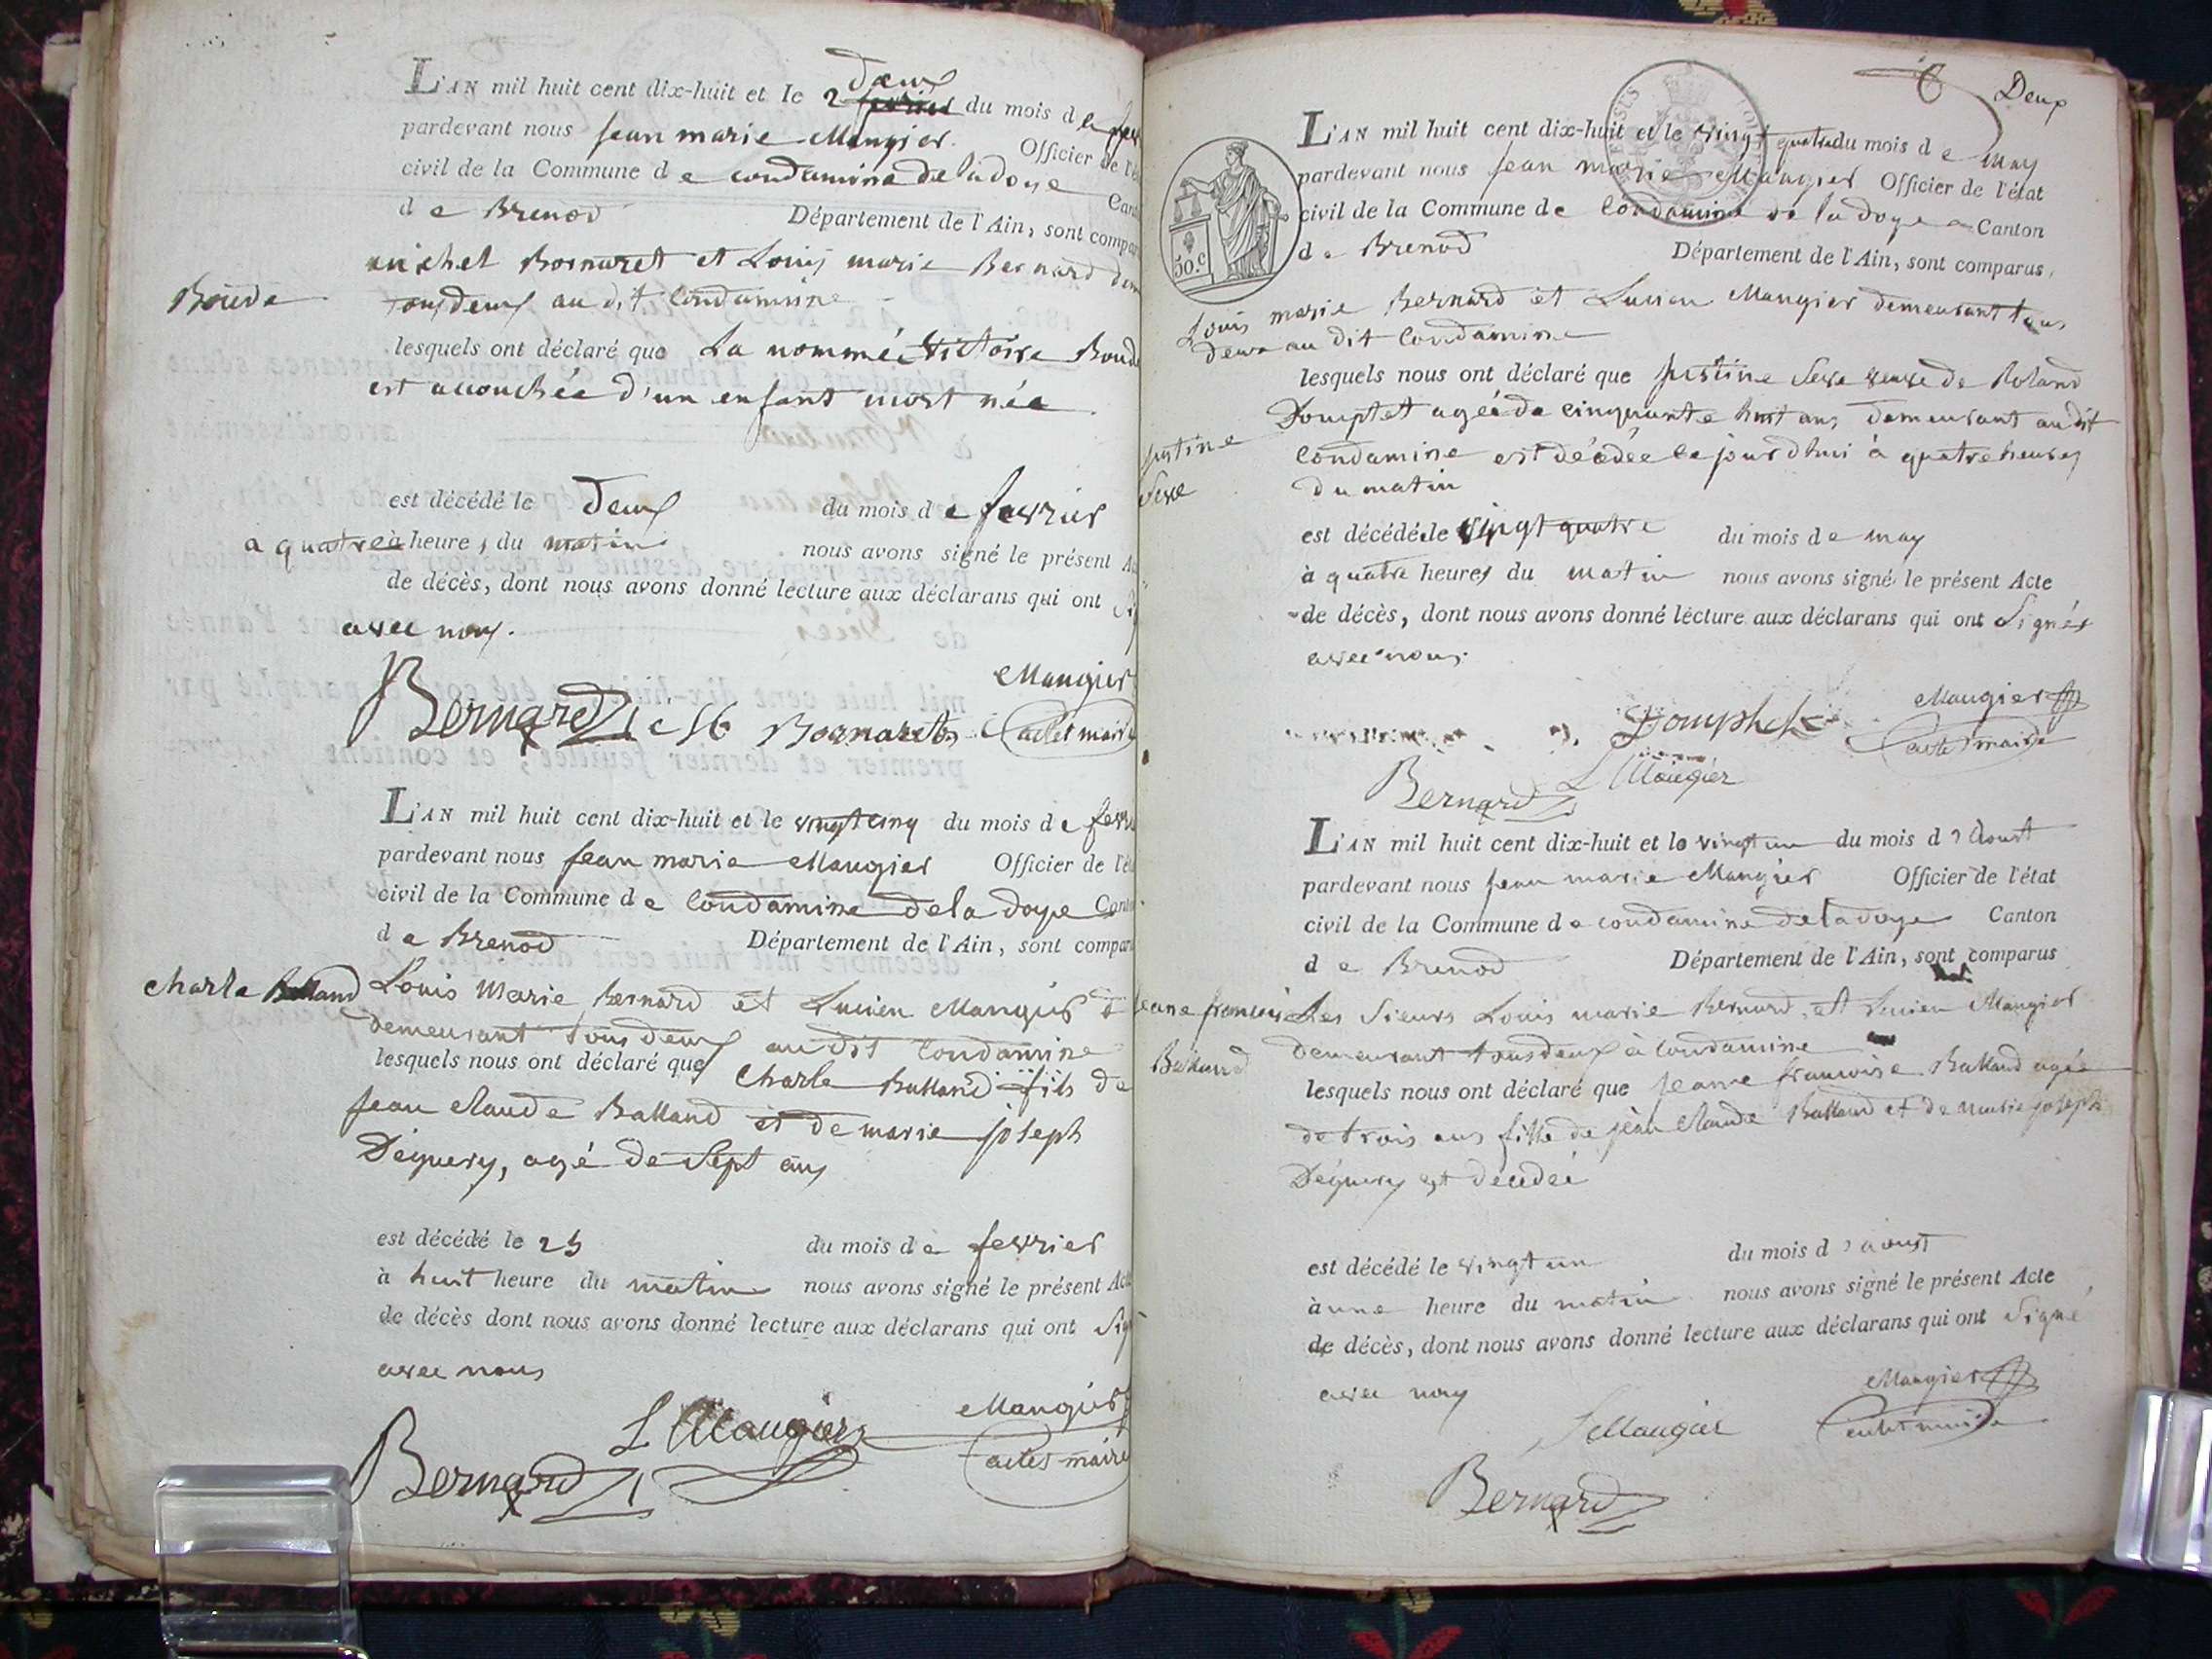 L'AN mil huit cent dix-huit et le 2 deux du mois de
pardevant nous Jean marie Maugier Officier de
civil de la Commune de condamine de la doye
de Brenod Département de l'Ain, sont
michel Bornaret et Louis marie Bernard
Boude
tous deux au dit Condamine
lesquels ont déclaré que La nommée Victoire
est accouchée d'un enfant mort née
est décédé le deux du mois de fevrier
a quatre à heures du matin nous avons signé le présent
de décès, dont nous avons donné lecture aux déclarans qui ont
avec nous.
Maugier
Bernard Bornaret
L'AN mil huit cent dix-huit et le vingt cinq du mois de
pardevant nous Jean marie Maugier Officier de
civil de la Commune de Condamine de la doye
de Brenod Département de l'Ain, sont
charle Balland
Louis Marie Bernard et Lucien Maugier
demeurant tous deux audit Condamine
lesquels nous ont déclaré que Charle Balland fils de
Jean Claude Balland et de marie joseph
Déguery, agé de Sept ans
est décédé le 25 du mois de fevrier
à huit heure du matin nous avons signé le présent
de décès dont nous avons donné lecture aux déclarans qui ont
avec nous
L Maugier Maugier
Bernard
Deux
L'AN mil huit cent dix-huit et le vingt quatre du mois de may
pardevant nous Jean marie Maugier Officier de l'état
civil de la Commune de Condamine de la doye Canton
de Brenod Département de l'Ain, sont comparus,
50.c
Louis marie Bernard et Lucien Maugier demeurant tous
deux au dit Condamine
lesquels nous ont déclaré que justine Seve veuve de Roland
Domptet agée de cinquante huit ans demeurant audit
justine
Seve
Condamine est décédée cejourdhui à quatre heures
du matin
est décédé le vingt quatre du mois de may
à quatre heures du matin nous avons signé le présent Acte
de décès, dont nous avons donné lecture aux déclarans qui ont Signés
avec nous.
Domphet Maugier
Bernard L Maugier
L'AN mil huit cent dix-huit et le vingt un du mois d'Aoust
pardevant nous Jean marie Maugier Officier de l'état
civil de la Commune de condamine de la doye Canton
de Brenod Département de l'Ain, sont comparus
jeane francoise
Balland
Les Sieurs Louis marie Bernard et Lucien Maugier
demeurant tous deux à Condamine
lesquels nous ont déclaré que Jeanne francoise Balland agée
de trois ans fille de jean Claude Balland et de marie joseph
Déguery est décédée
est décédé le vingt un du mois d'aoust
à une heure du matin nous avons signé le présent Acte
de décès, dont nous avons donné lecture aux déclarans qui ont Signé
avec nous
Maugier
L Maugier
Bernard